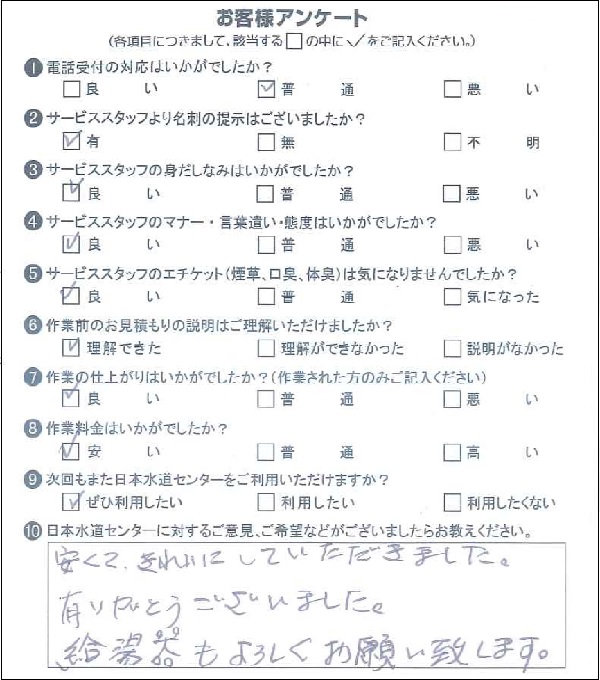 お客様アンケート
(各項目につきまして、該当する□の中に✓をご記入ください。)
❶電話受付の対応はいかがでしたか?
□良い ☑普通 □悪い
❷サービススタッフより名刺の提示はございましたか?
☑有 □無 □不明
❸サービススタッフの身だしなみはいかがでしたか?
☑良い □普通 □悪い
❹サービススタッフのマナー・言葉遣い・態度はいかがでしたか?
☑良い □普通 □悪い
❺サービススタッフのエチケット(煙草、口臭、体臭)は気になりませんでしたか?
☑良い □普通 □気になった
❻作業前のお見積もりの説明はご理解いただけましたか?
☑理解できた □理解ができなかった □説明がなかった
❼作業の仕上がりはいかがでしたか?(作業された方のみご記入ください)
☑良い □普通 □悪い
❽作業料金はいかがでしたか?
☑安い □普通 □高い
❾次回もまた日本水道センターをご利用いただけますか?
☑ぜひ利用したい □利用したい □利用したくない
❿日本水道センターに対するご意見、ご希望などがございましたらお教えください。
安くて、きれいにしていただきました。
有りがとうございました。
給湯器もよろしくお願い致します。